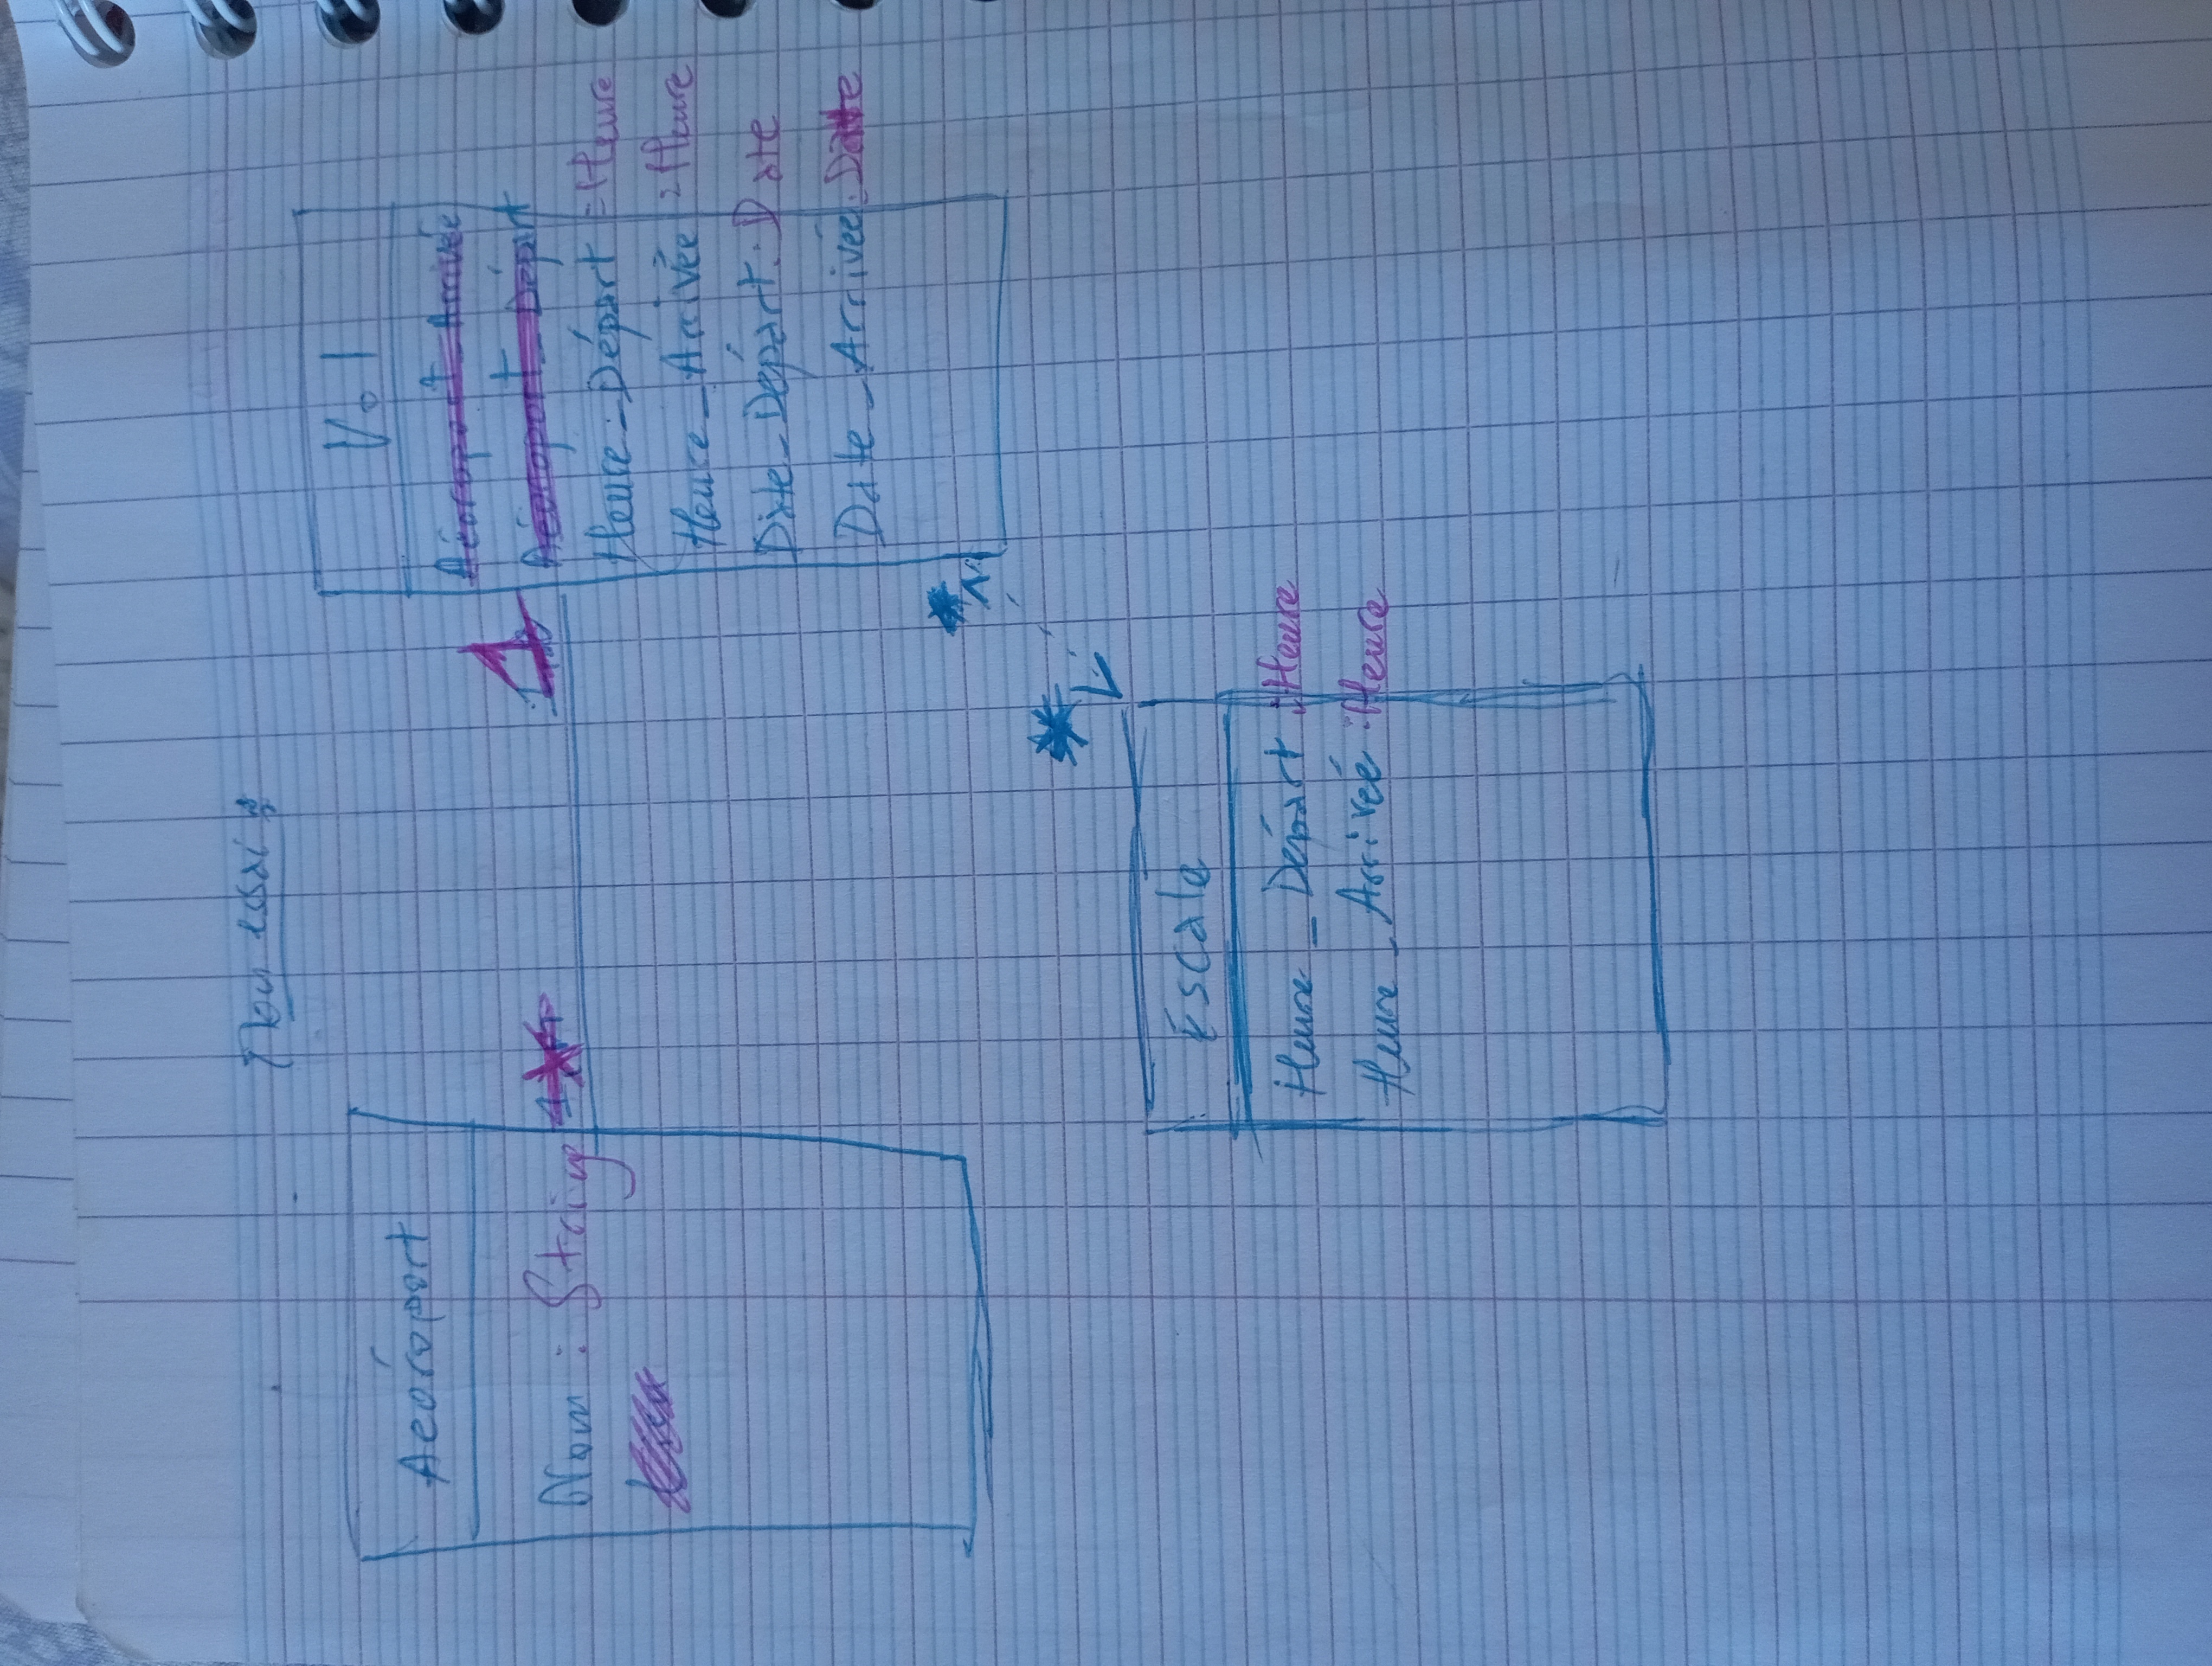 Mon essai :
Aeóroport
Nom : String
*
1
Vol
Aéoroport_Arrivée
Aéoroport_Départ
Heure_Départ : Heure
Heure_Arrivée : Heure
Date_Départ : Date
Date_Arrivée : Date
*
*
Escale
Heure_Départ : Heure
Heure_Arrivée : Heure